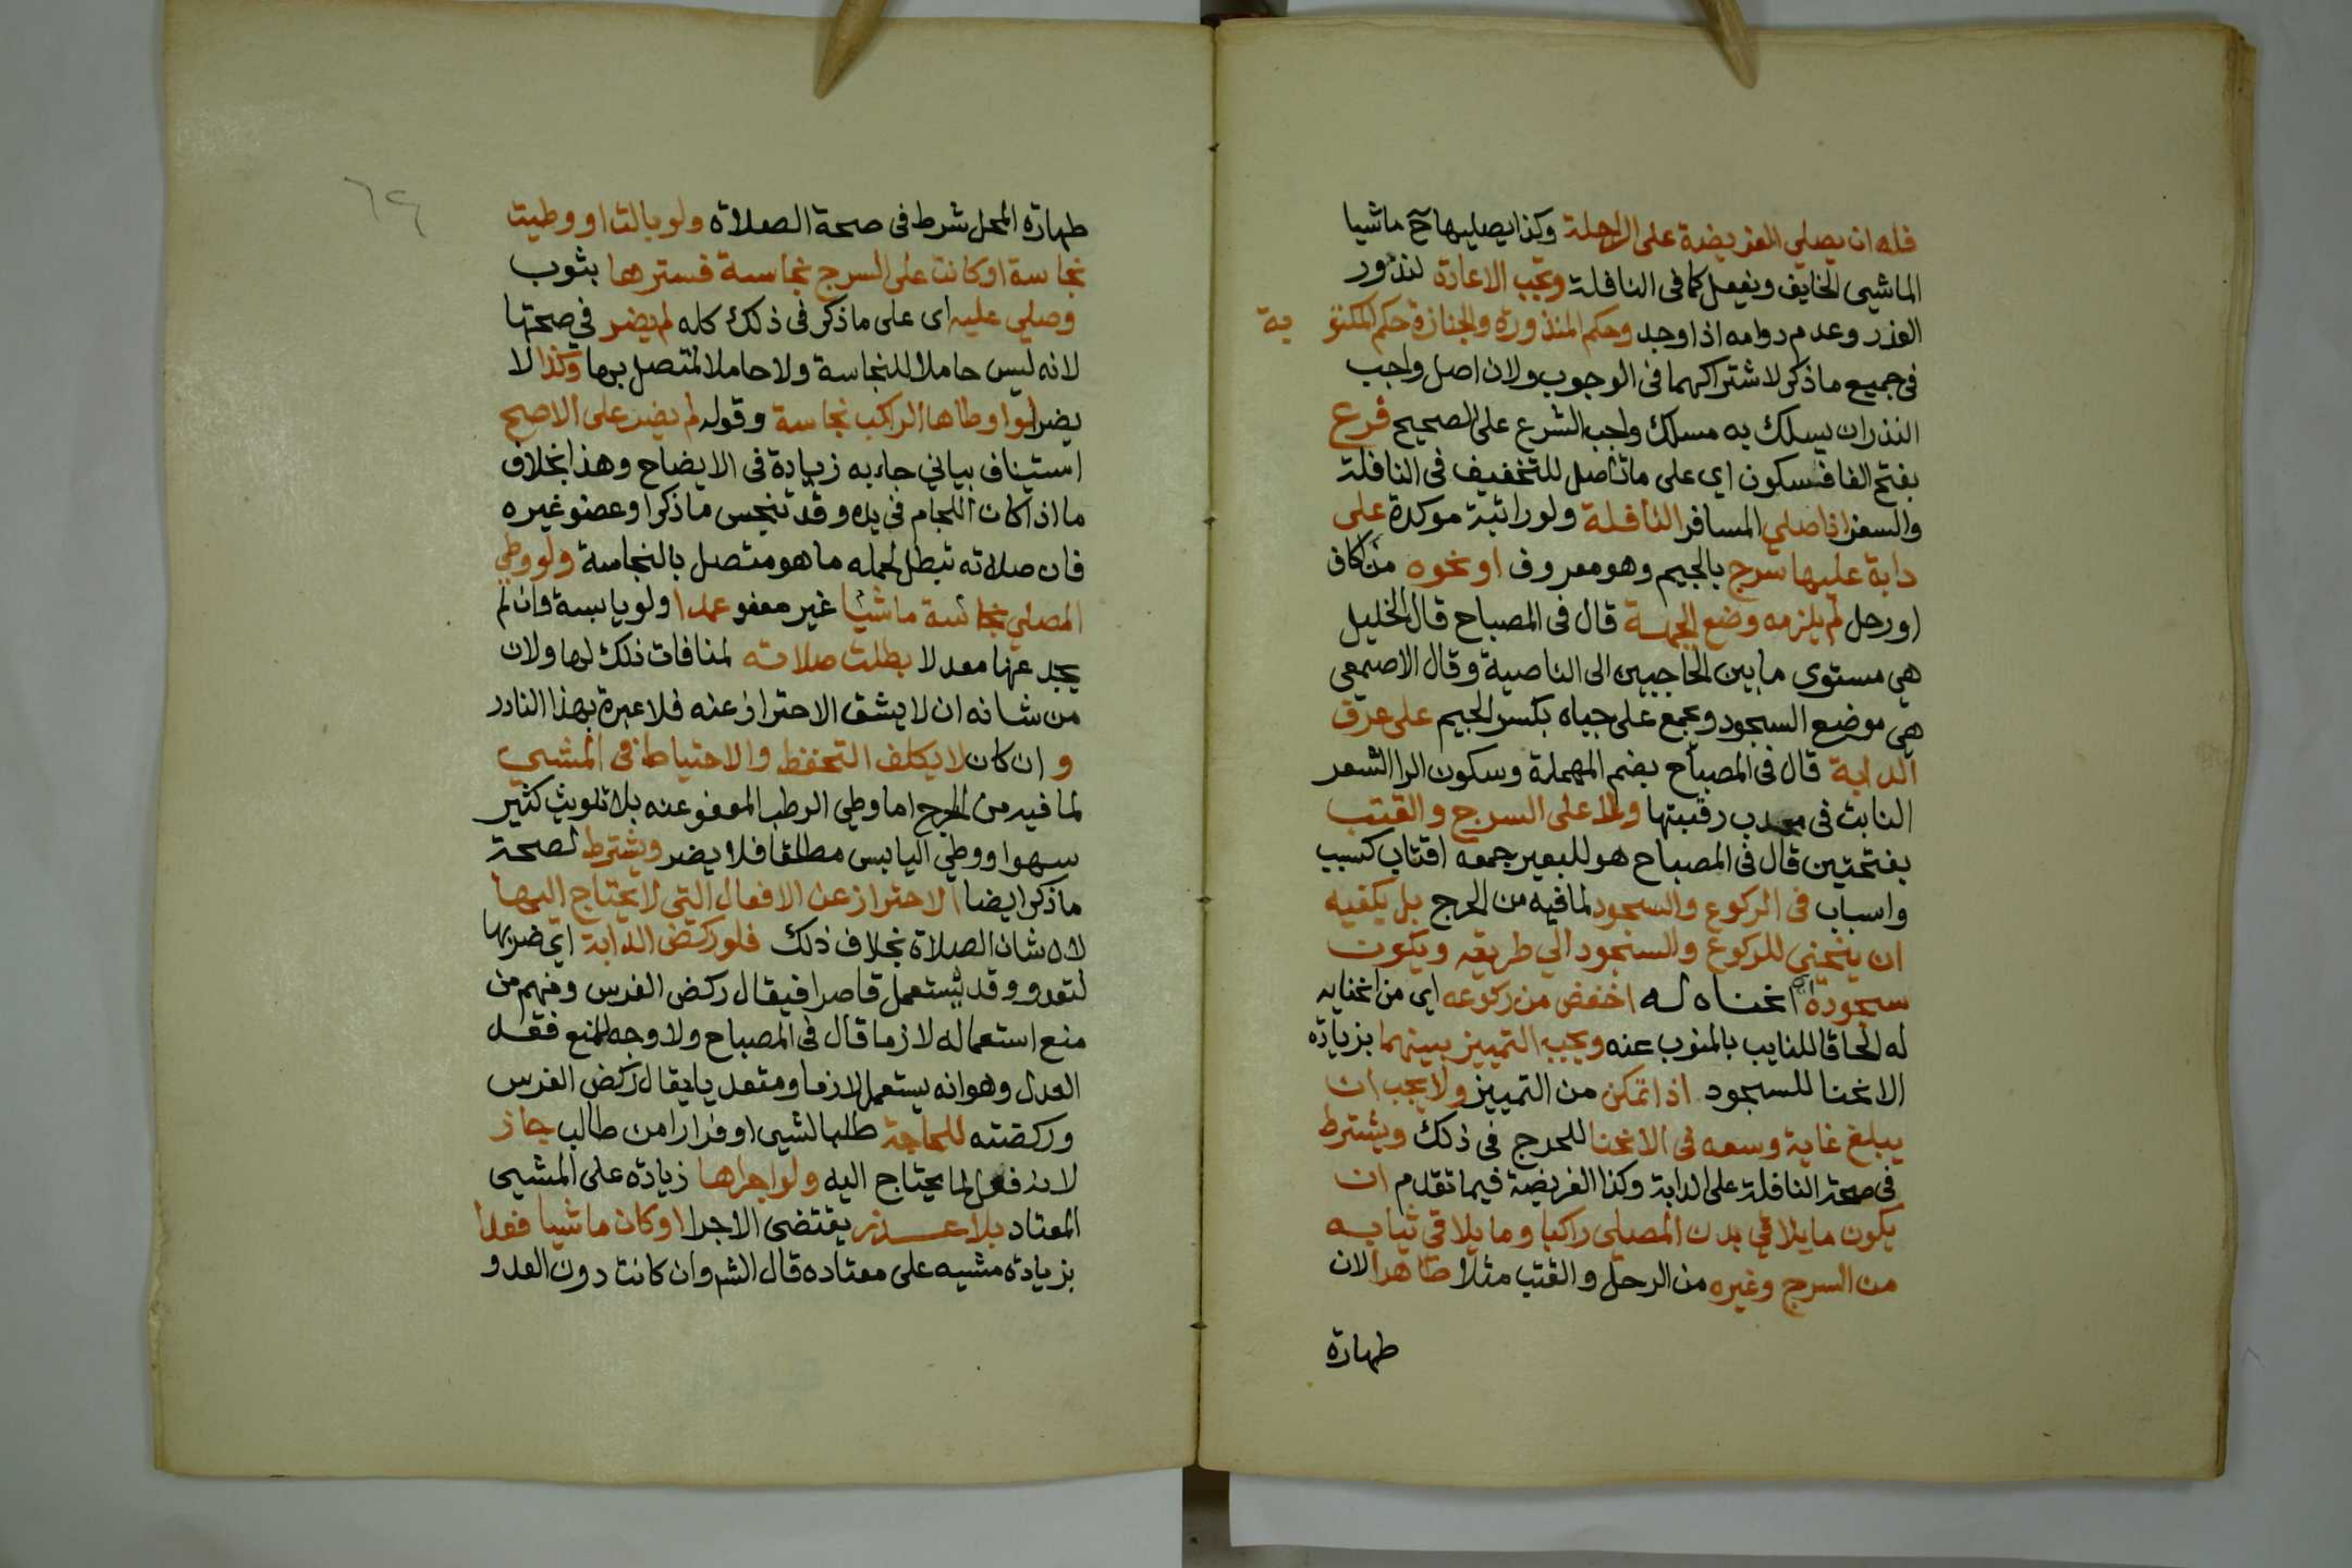 فله ان يصلي الفريضة على الراحلة وكذا يصليها ح ماشيا
الماشي الخايف ويفعل كما فى النافلة وتجب الاعادة لندور
العذر وعدم دوامه اذا وجد وحكم المنذورة والجنازة حكم المكتو بة
فى جميع ما ذكر لاشتراكهما فى الوجوب ولان اصل واجب
النذر ان يسلك به مسلك واجب الشرع على الصحيح فرع
بفتح الفا فسكون اي على ما تأصل للتخفيف فى النافلة
والسفر اذا صلي المسافر النافلة ولو راتبة موكدة على
دابة عليها سرج بالجيم وهو معروف او نحوه من اكاف
اورحل لم يلزمه وضع الجبهة قال فى المصباح قال الخليل
هى مستوى ما بين الحاجبين الى الناصية وقال الاصمعى
هى موضع السجود وتجمع على جباه بكسر الجيم على عرف
الدابة قال فى المصباح بضم المهملة وسكون الرا الشعر
النابت فى محدب رقبتها ولا على السرج والقتب
بفتحتين قال فى المصباح هو للبعير جمعه اقتاب كسبب
واسباب فى الركوع والسجود لما فيه من الحرج بل يكفيه
ان ينحني للركوع والسجود الي طريقه ويكون
سجوده اى انحناه له اخفض من ركوعه اى من انحنايه
له الحاقا للنايب بالمنوب عنه ويجب التمييز بينهما بزيادة
الانحنا للسجود اذا تمكن من التمييز ولا يجب ان
يبلغ غاية وسعه فى الانحنا للحرج فى ذلك ويشترط
فى صحة النافلة على الدابة وكذا الفريضة فيما تقدم ان
يكون ما يلاقي بدن المصلى راكبا وما يلاقي ثيابه
من السرج وغيره من الرحل والقتب مثلا طاهرا لان
طهارة
٦٤
طهارة المحل شرط فى صحة الصلاة ولو بالت او وطيت
نجاسة او كانت على السرج نجاسة فسترها بثوب
وصلي عليه اى على ما ذكر فى ذلك كله لم يضر فى صحتها
لانه ليس حاملا للنجاسة ولا حاملا لمتصل بها وكذا لا
يضر لو اوطاها الراكب نجاسة وقوله لم يضر على الاصح
استيناف بياني جاء به زيادة فى الايضاح وهذا بخلاف
ما اذا كان اللجام فى يده وقد تنجس ما ذكر او عضو غيره
فان صلاته تبطل لحمله ما هو متصل بالنجاسة ولو وطي
المصلي نجاسة ماشيا غير معفو عمدا ولو يابسة وان لم
يجد عنها معدلا بطلت صلاته لمنافات ذلك لها ولان
من شانه ان لا يشق الاحتراز عنه فلا عبرة بهذا النادر
و ان كان لا يكلف التحفظ والاحتياط فى المشي
لما فيه من الحرج اما وطي الرطب المعفو عنه بلا تلويث كثير
سهوا ووطي اليابس مطلقا فلا يضر ويشترط لصحة
ما ذكر ايضا الاحتراز عن الافعال التي لا يحتاج اليها
لان شان الصلاة بخلاف ذلك فلو ركض الدابة اي ضربها
لتعدو وقد يستعمل قاصرا فيقال ركض الفرس ومنهم من
منع استعماله لازما قال فى المصباح ولا وجه للمنع فقد نقل
العدل وهو انه يستعمل لازما ومتعديا يقال ركض الفرس
وركضته للحاجة طلبا لشيى او فرارا من طالب جاز
لانه فعل لما يحتاج اليه ولو اجراها زيادة على المشيى
المعتاد بلا عذر يقتضى الاجرا او كان ماشيا فعدا
بزيادة مشيه على معتاده قال الشر وان كانت دون العدو